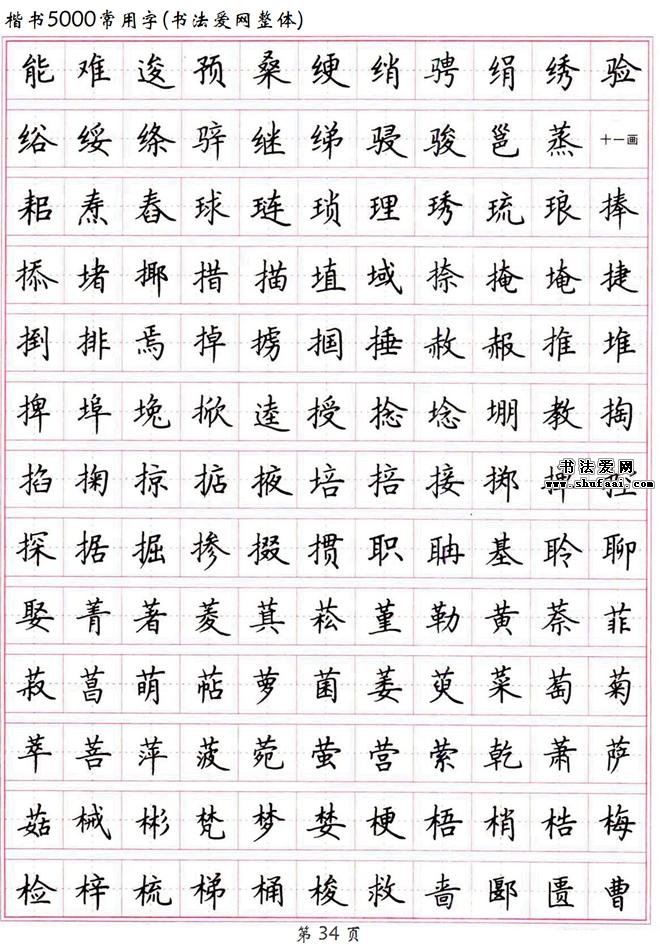 楷书5000常用字(书法爱网整体)
能难逡预桑绠绡骋绢绣验
绤绥绦骍继绨骎骏邕蒸十一画
耜焘舂球琏琐理琇琉琅捧
掭堵揶措描埴域捺掩埯捷
捯排焉掉掳掴捶赦赧推堆
捭埠堍掀逵授捻埝堋教掏
掐掬掠掂掖培掊接掷
书法爱网
www.shufaai.com
探据掘掺掇掼职聃基聆聊
娶菁著菱萁菘堇勒黄萘菲
菽菖萌萜萝菌萎萸菜萄菊
萃菩萍菠菀萤营萦乾萧萨
菇械彬梵梦婪梗梧梢梏梅
检梓梳梯桶梭救啬郾匮曹
第34页